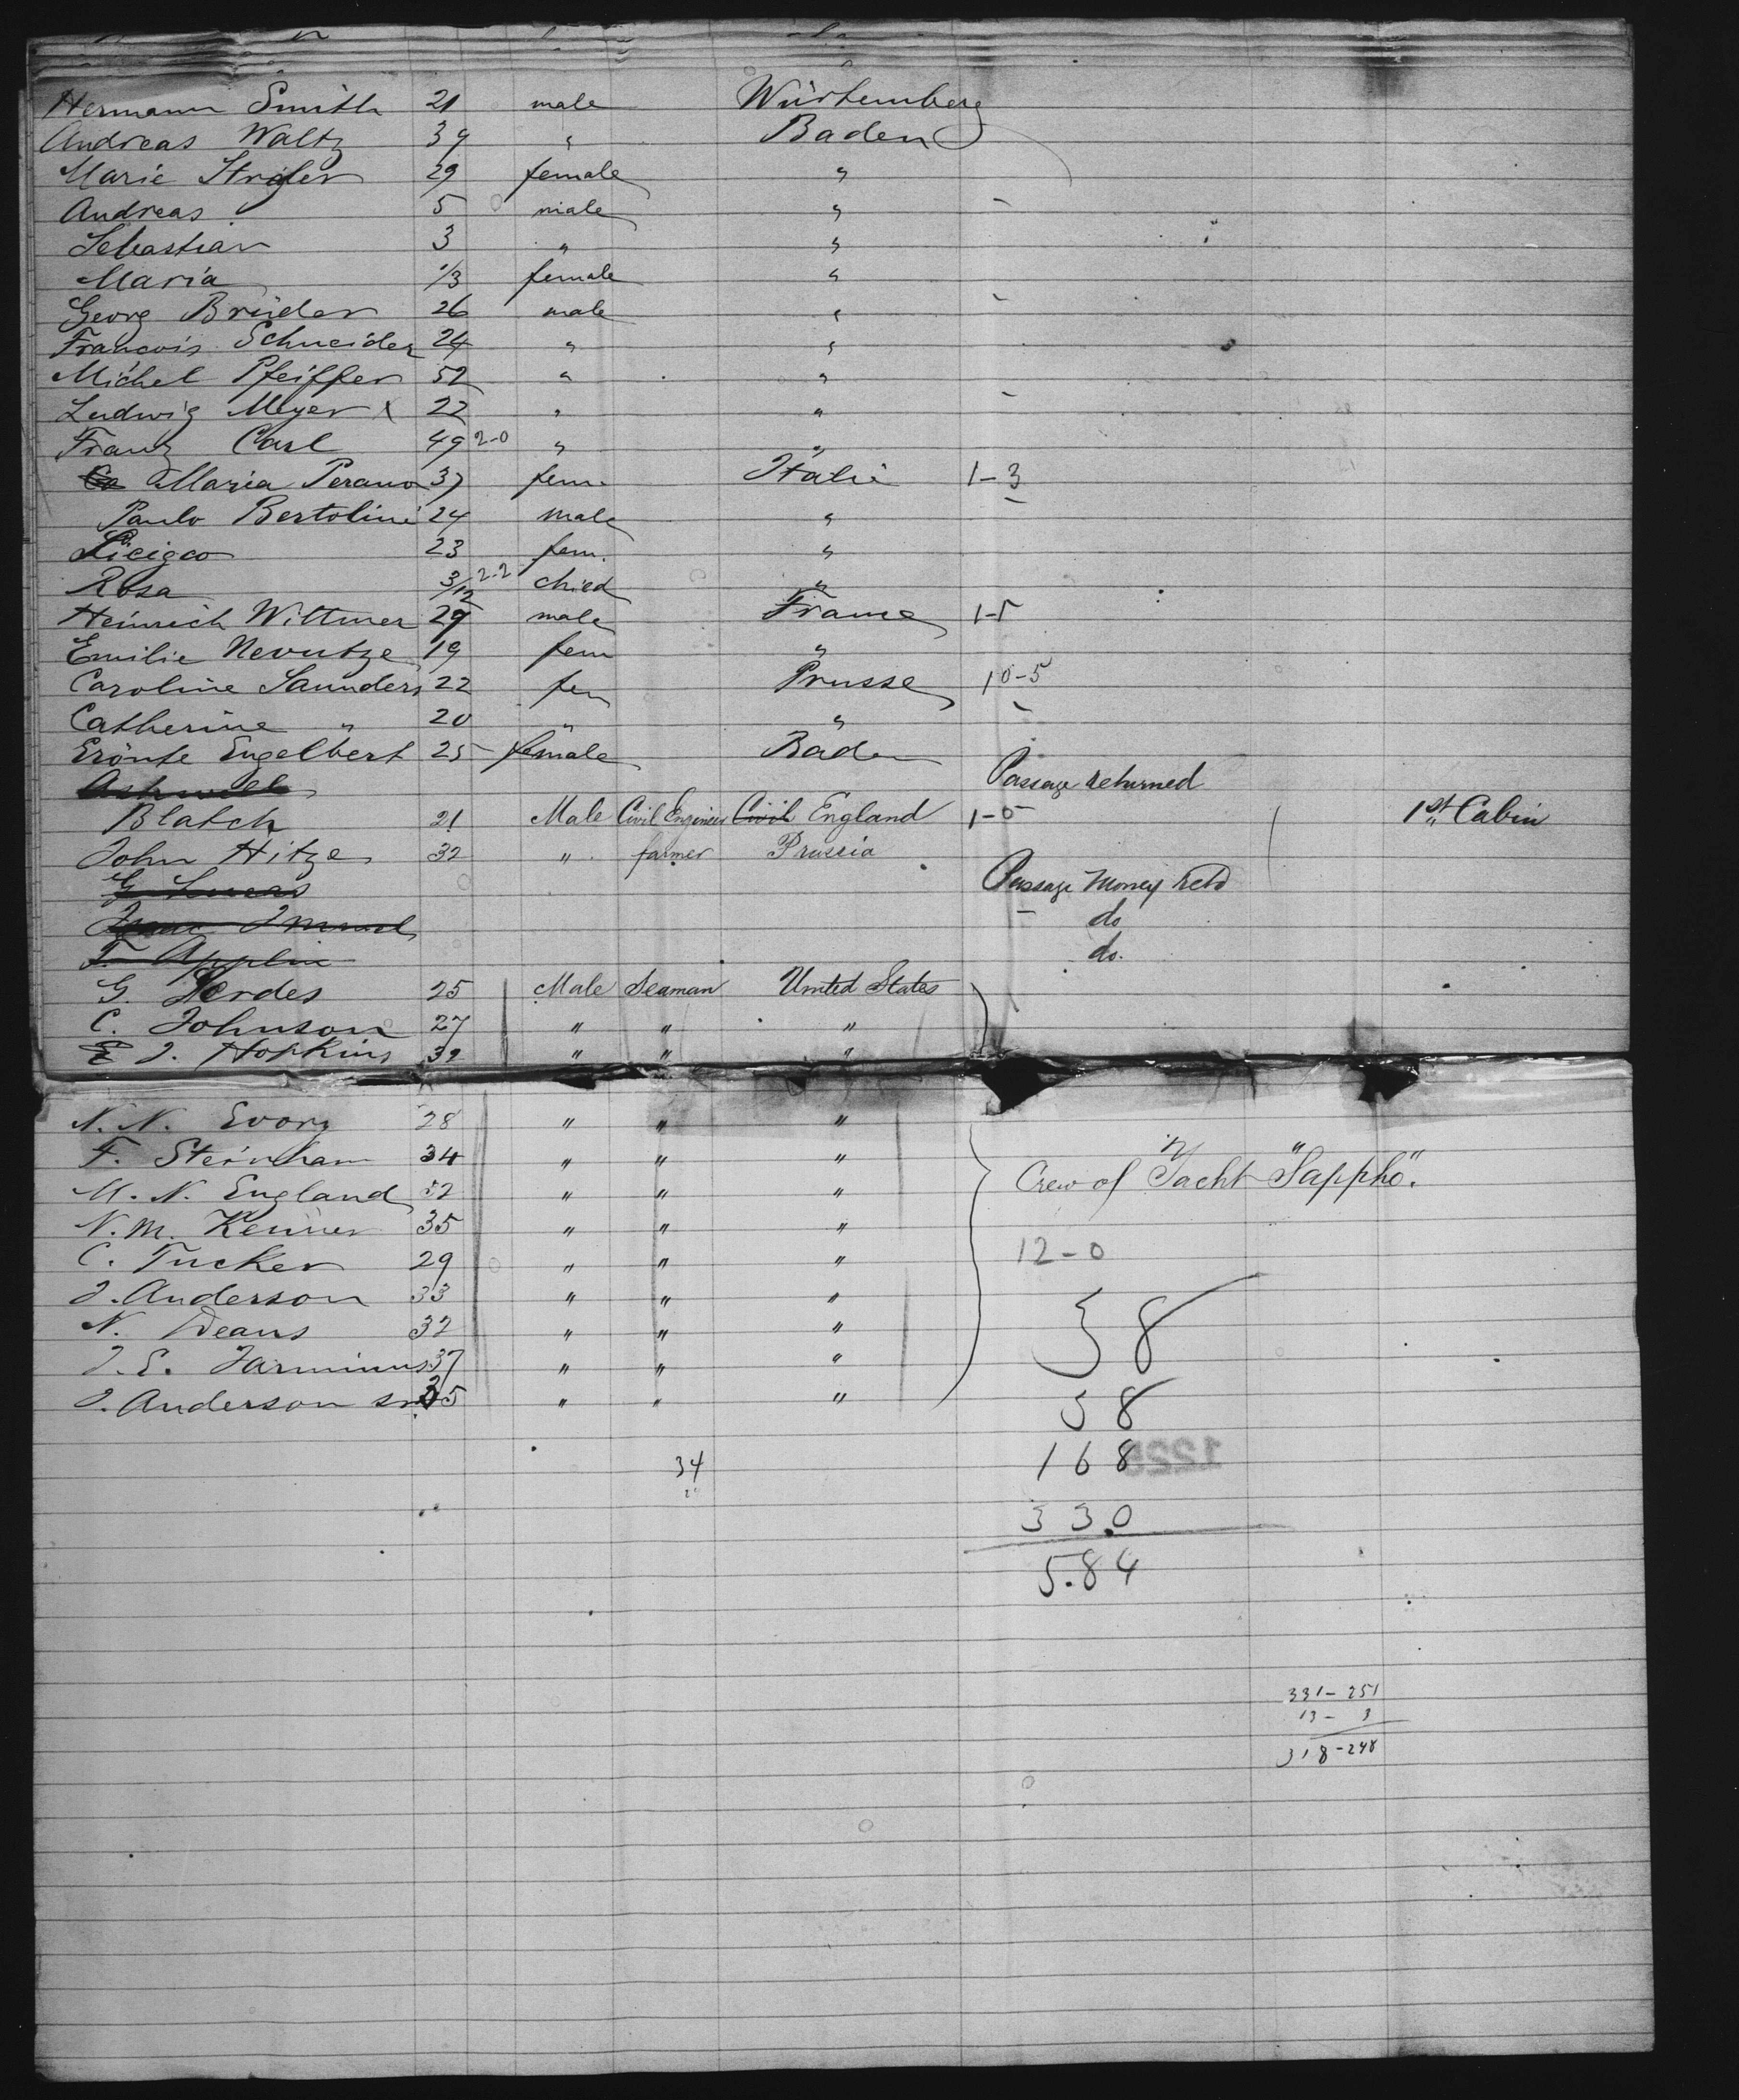 Hermann Smith 21 male Würtemberg
Andreas Waltz 39 " Baden
Marie 29 female "
Andreas 5 male "
Sebastian 3 " "
Maria 1/3 female "
Georg Brüder 26 male "
Francois Schneider 24 " "
Michel Pfeiffer 52 " "
Ludwig Meyer x 22 " "
Frantz Carl 49 2-0 " "
Maria Perano 37 fem. Italie 1-3
Paulo Bertolini 24 male "
23 fem. "
Rosa 3/12 2-2 chied "
Heinrich Wittmer 29 male France 1-5
Emilie 19 fem "
Caroline Saunders 22 fem Prusse 10-5
Catherine " 20 " "
Engelbert 25 female Baden
Ashwell Passage returned
Blatch 21 Male Civil Engineer Civil England 1-0 1st Cabin
John Hitze 32 " farmer Prussia
G Lucas Passage Money Retd
do
F. Applin do.
G. Gerdes 25 Male Seaman United States
C. Johnson 27 " " "
E J. Hopkins 32 " " "
N. N. Evory 28 " " "
F. Steinham 34 " " "
M. N. England 32 " " " Crew of Yacht "Sappho".
N. M. Kenner 35 " " "
C. Tucker 29 " " " 12-0
J. Anderson 33 " " "
N. Deans 32 " " " 38
J. E. Jarminus 37 " " "
J. Anderson sr 35 " " " 58
34 168
330
5.84
331-251
13-3
318-248